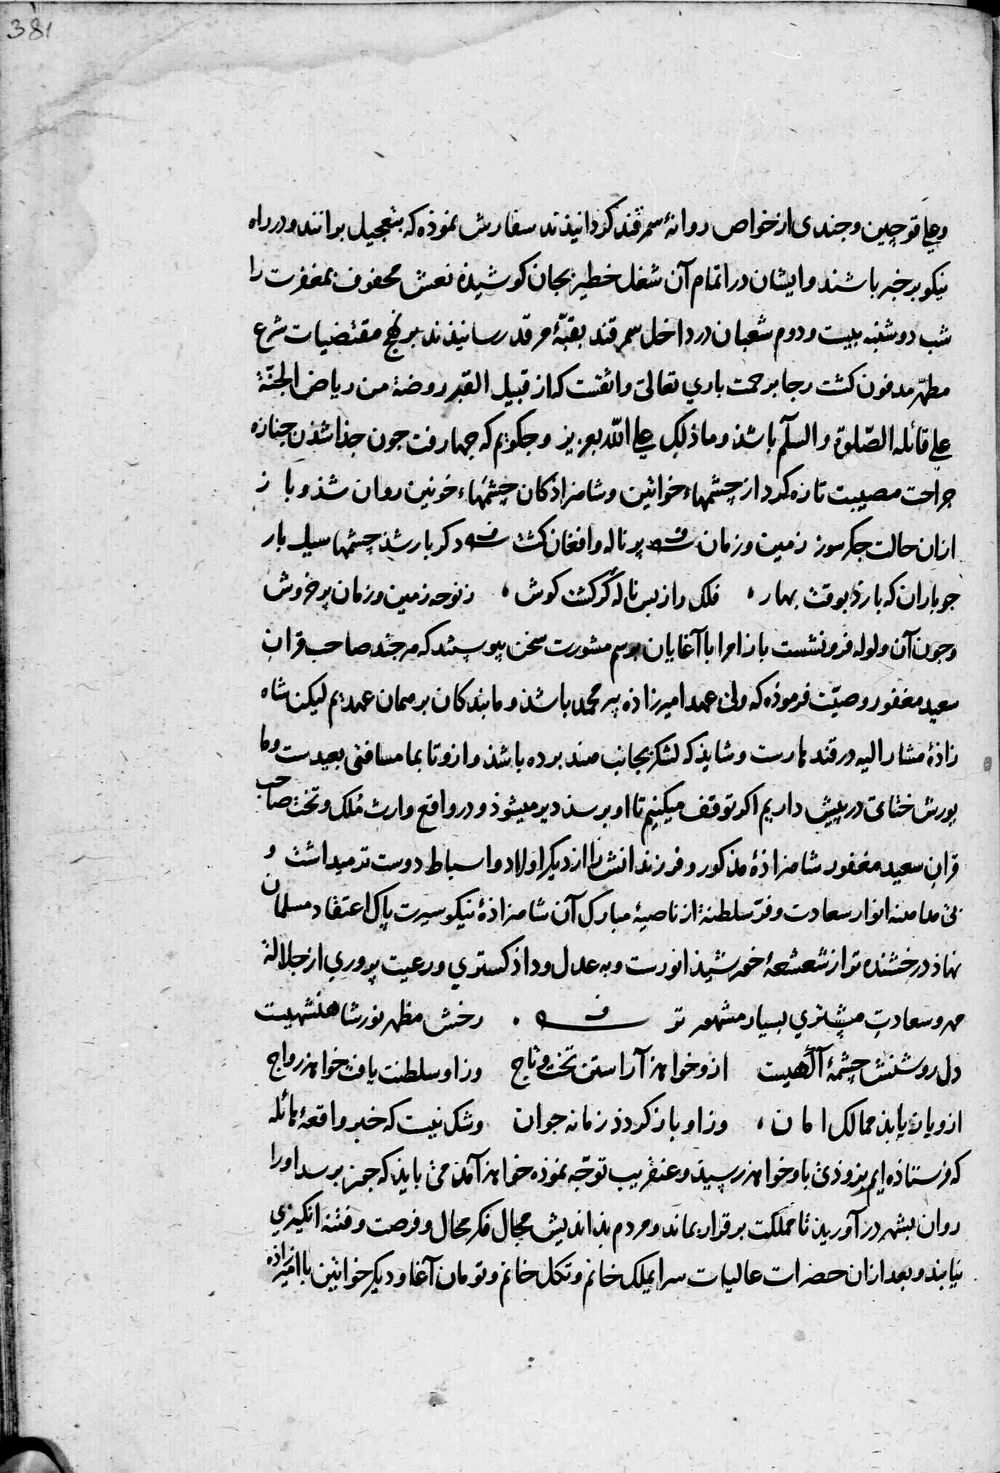 381
وعلی قوچین و جندی از خواص روانهٔ سمرقند کردانیذند سفارش نموذه که بتعجیل برانند و در راه
نیکو برخبر باشند و ایشان در اتمام آن شغل خطیر بجان کوشیذه نعش محفوف بمغفرت را
شب دوشنبه بیست و دوم شعبان در داخل سمرقند بقبّهٔ مرقد رسانیذند بر نهج مقتضیات شرع
مطهّر مدفون کشت رجا برحمت باری تعالی واثقست که از قبیل القبر روضة من ریاض الجنّة
علی قائله الصّلوة والسلم باشذ وماذلک علی الله بعزیز و جکویم که جها رفت جون جذا شذن جنازه
جراحت مصیبت تازه کرد از چشمهاء خواتین و شاهزاذکان چشمهاء خونین روان شذ و باز
ازان حالت جکرسوز زمین و زمان پر ناله و افغان کشت دکر بار شذ چشمها سیل بار
جو باران که بارذ بوقت بهار فلک را ز بس ناله کر کشت کوش ز نوحه زمین و زمان پر خروش
وجون آن ولوله فرونشست باز امرا با آغایان برسم مشورت سخن پیوستند که هرجند صاحب قران
سعید مغفور وصیّت فرموذه که ولی عهد امیرزاذه پیر محمد باشذ و ما بندکان بر همان عهدیم لیکن شاه
زاذهٔ مشار الیه در قندهارست و شایذ که لشکر بجانب هند برده باشذ و ازو تا بما مسافتی بعیدست و ما
یورش ختای در پیش داریم اکر توقف میکنیم تا او برسذ دیر میشوذ و در واقع وارث مُلک و تخت صاحب
قران سعید مغفور شاهزاذهٔ مذکور و فرزندانش را از دیکر اولاد و اسباط دوست تر میداشت و
بی مداهنه انوار سعادت و فرّ سلطنة از ناصیهٔ مبارک آن شاهزاذهٔ نیکو سیرت پاک اعتقاد مسلمان
نهاذ درخشنده تر از شعشعهٔ خورشیذ انورست و به عدل و داذ کستری و رعیت پروری از جلالة
مهر و سعادتِ مشتری بسیار مشهورتر رخش مظهر نور شاهنشهیست
دل روشنش چشمهٔ آکهیست ازو خواهذ آراستن تخت و تاج وزاو سلطنت یافت خواهذ رواج
ازو باز یابذ ممالک امان وزاو باز کردذ زمانه جوان و شک نیست که خبر واقعهٔ هائله
که فرستاذه ایم بزوذی باو خواهذ رسیذ و عنقریب توجّه نموذه خواهذ آمذ می بایذ که جون برسد اورا
روان بشهر در آوریذ تا مملکت برقرار بماند و مردم بذاندیش مجال فکر محال و فرصت و فتنه انکیزی
نیابند و بعد ازان حضرات عالیات سرایملک خانم و تکل خانم و تومان آغا و دیکر خواتین با امیرزاذه